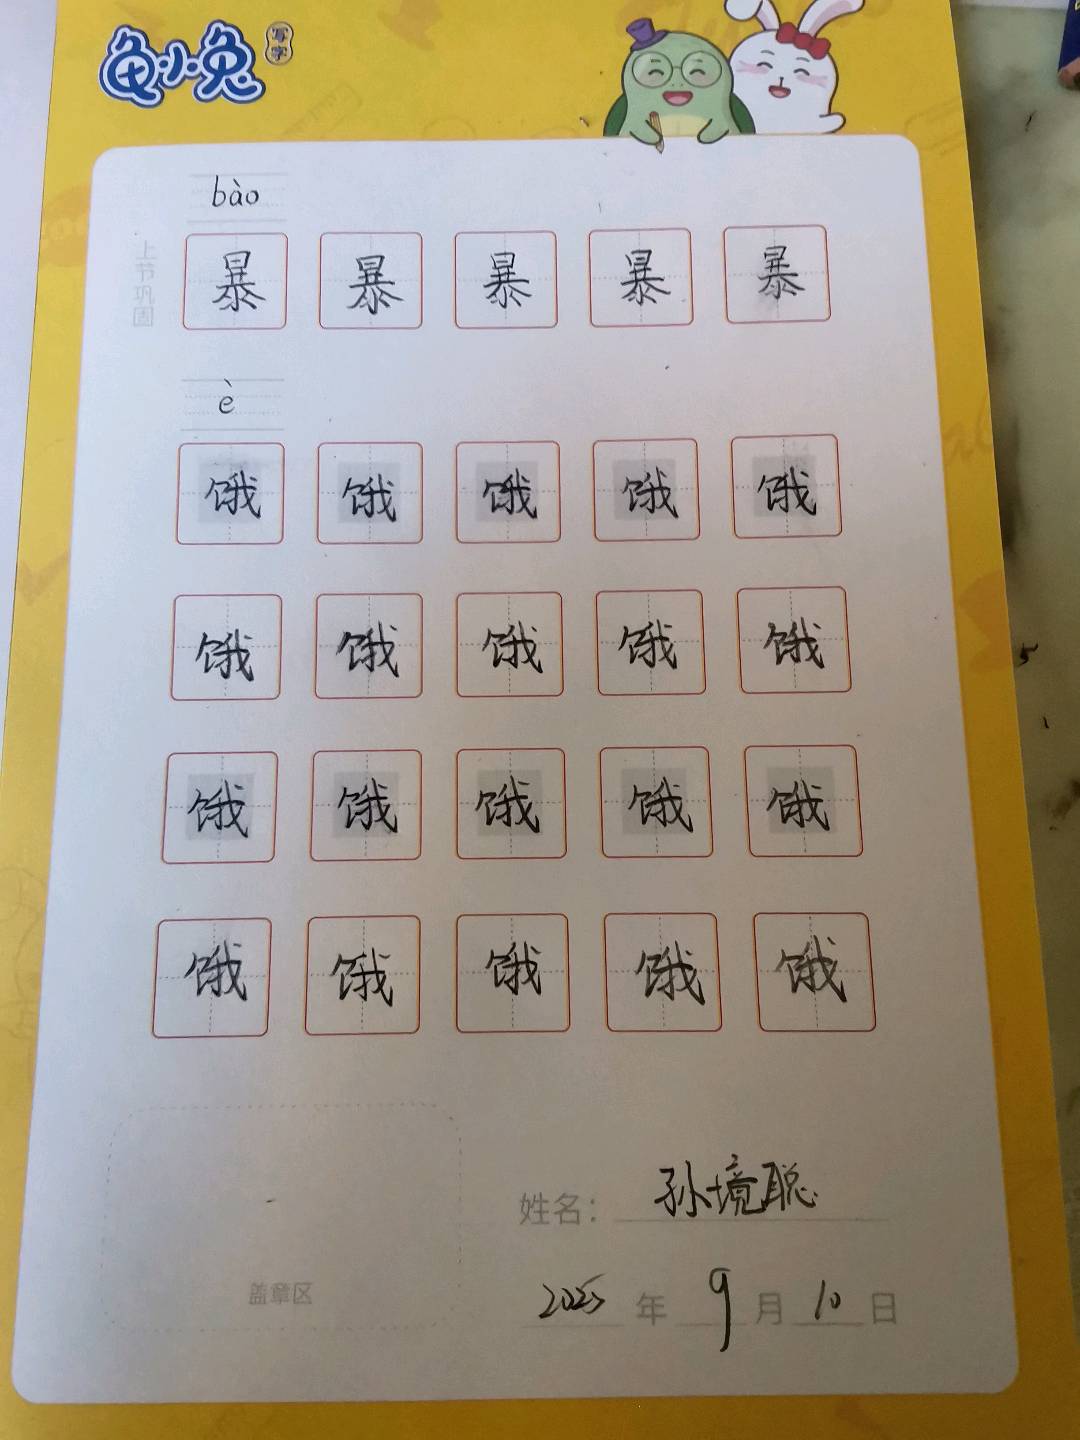 龟小兔写字
bào
上节巩固
暴 暴 暴 暴 暴
è
饿 饿 饿 饿 饿
饿 饿 饿 饿 饿
饿 饿 饿 饿 饿
饿 饿 饿 饿 饿
姓名：孙境聪
盖章区
2025 年 9 月 10 日